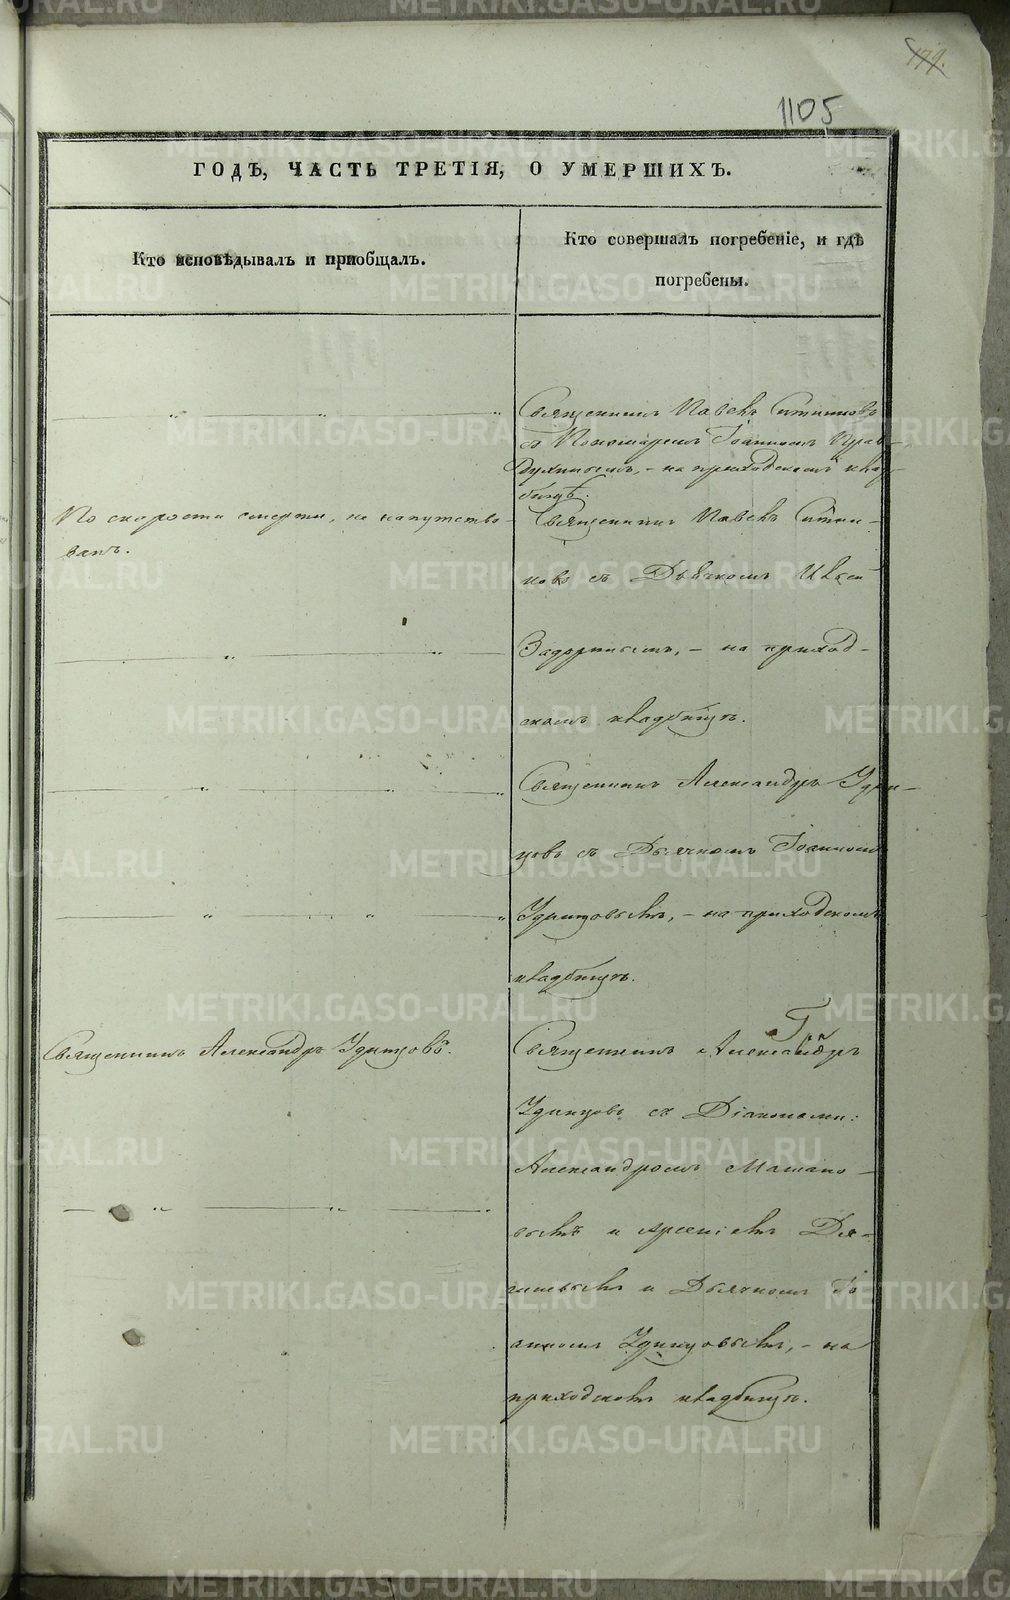 179.
1105
ГОДЪ, ЧАСТЬ ТРЕТІЯ, О УМЕРШИХЪ.
Кто исповѣдывалъ и пріобщалъ.
Кто совершалъ погребеніе, и гдѣ
погребены.
Священникъ Павелъ Ситниковъ
съ Пономаремъ Іоанномъ Прав-
духинымъ, - на приходскомъ клад-
бищѣ.
По скорости смерти, не напутство-
ванъ.
Священникъ Павелъ Ситни-
ковъ съ Дьячкомъ
Задоринымъ, - на приход-
скомъ кладбищѣ.
Священникъ Александръ Удин-
цовъ съ Дьячкомъ Іоанномъ
Удинцовымъ, - на приходскомъ
кладбищѣ.
Священникъ Александръ Удинцовъ.
Священникъ Александръ
Удинцовъ съ Діаконами:
Александромъ Мамино-
вымъ и Арсеніемъ
и Дьячкомъ Іо-
анномъ Удинцовымъ, - на
приходскомъ кладбищѣ.
METRIKI.GASO-URAL.RU